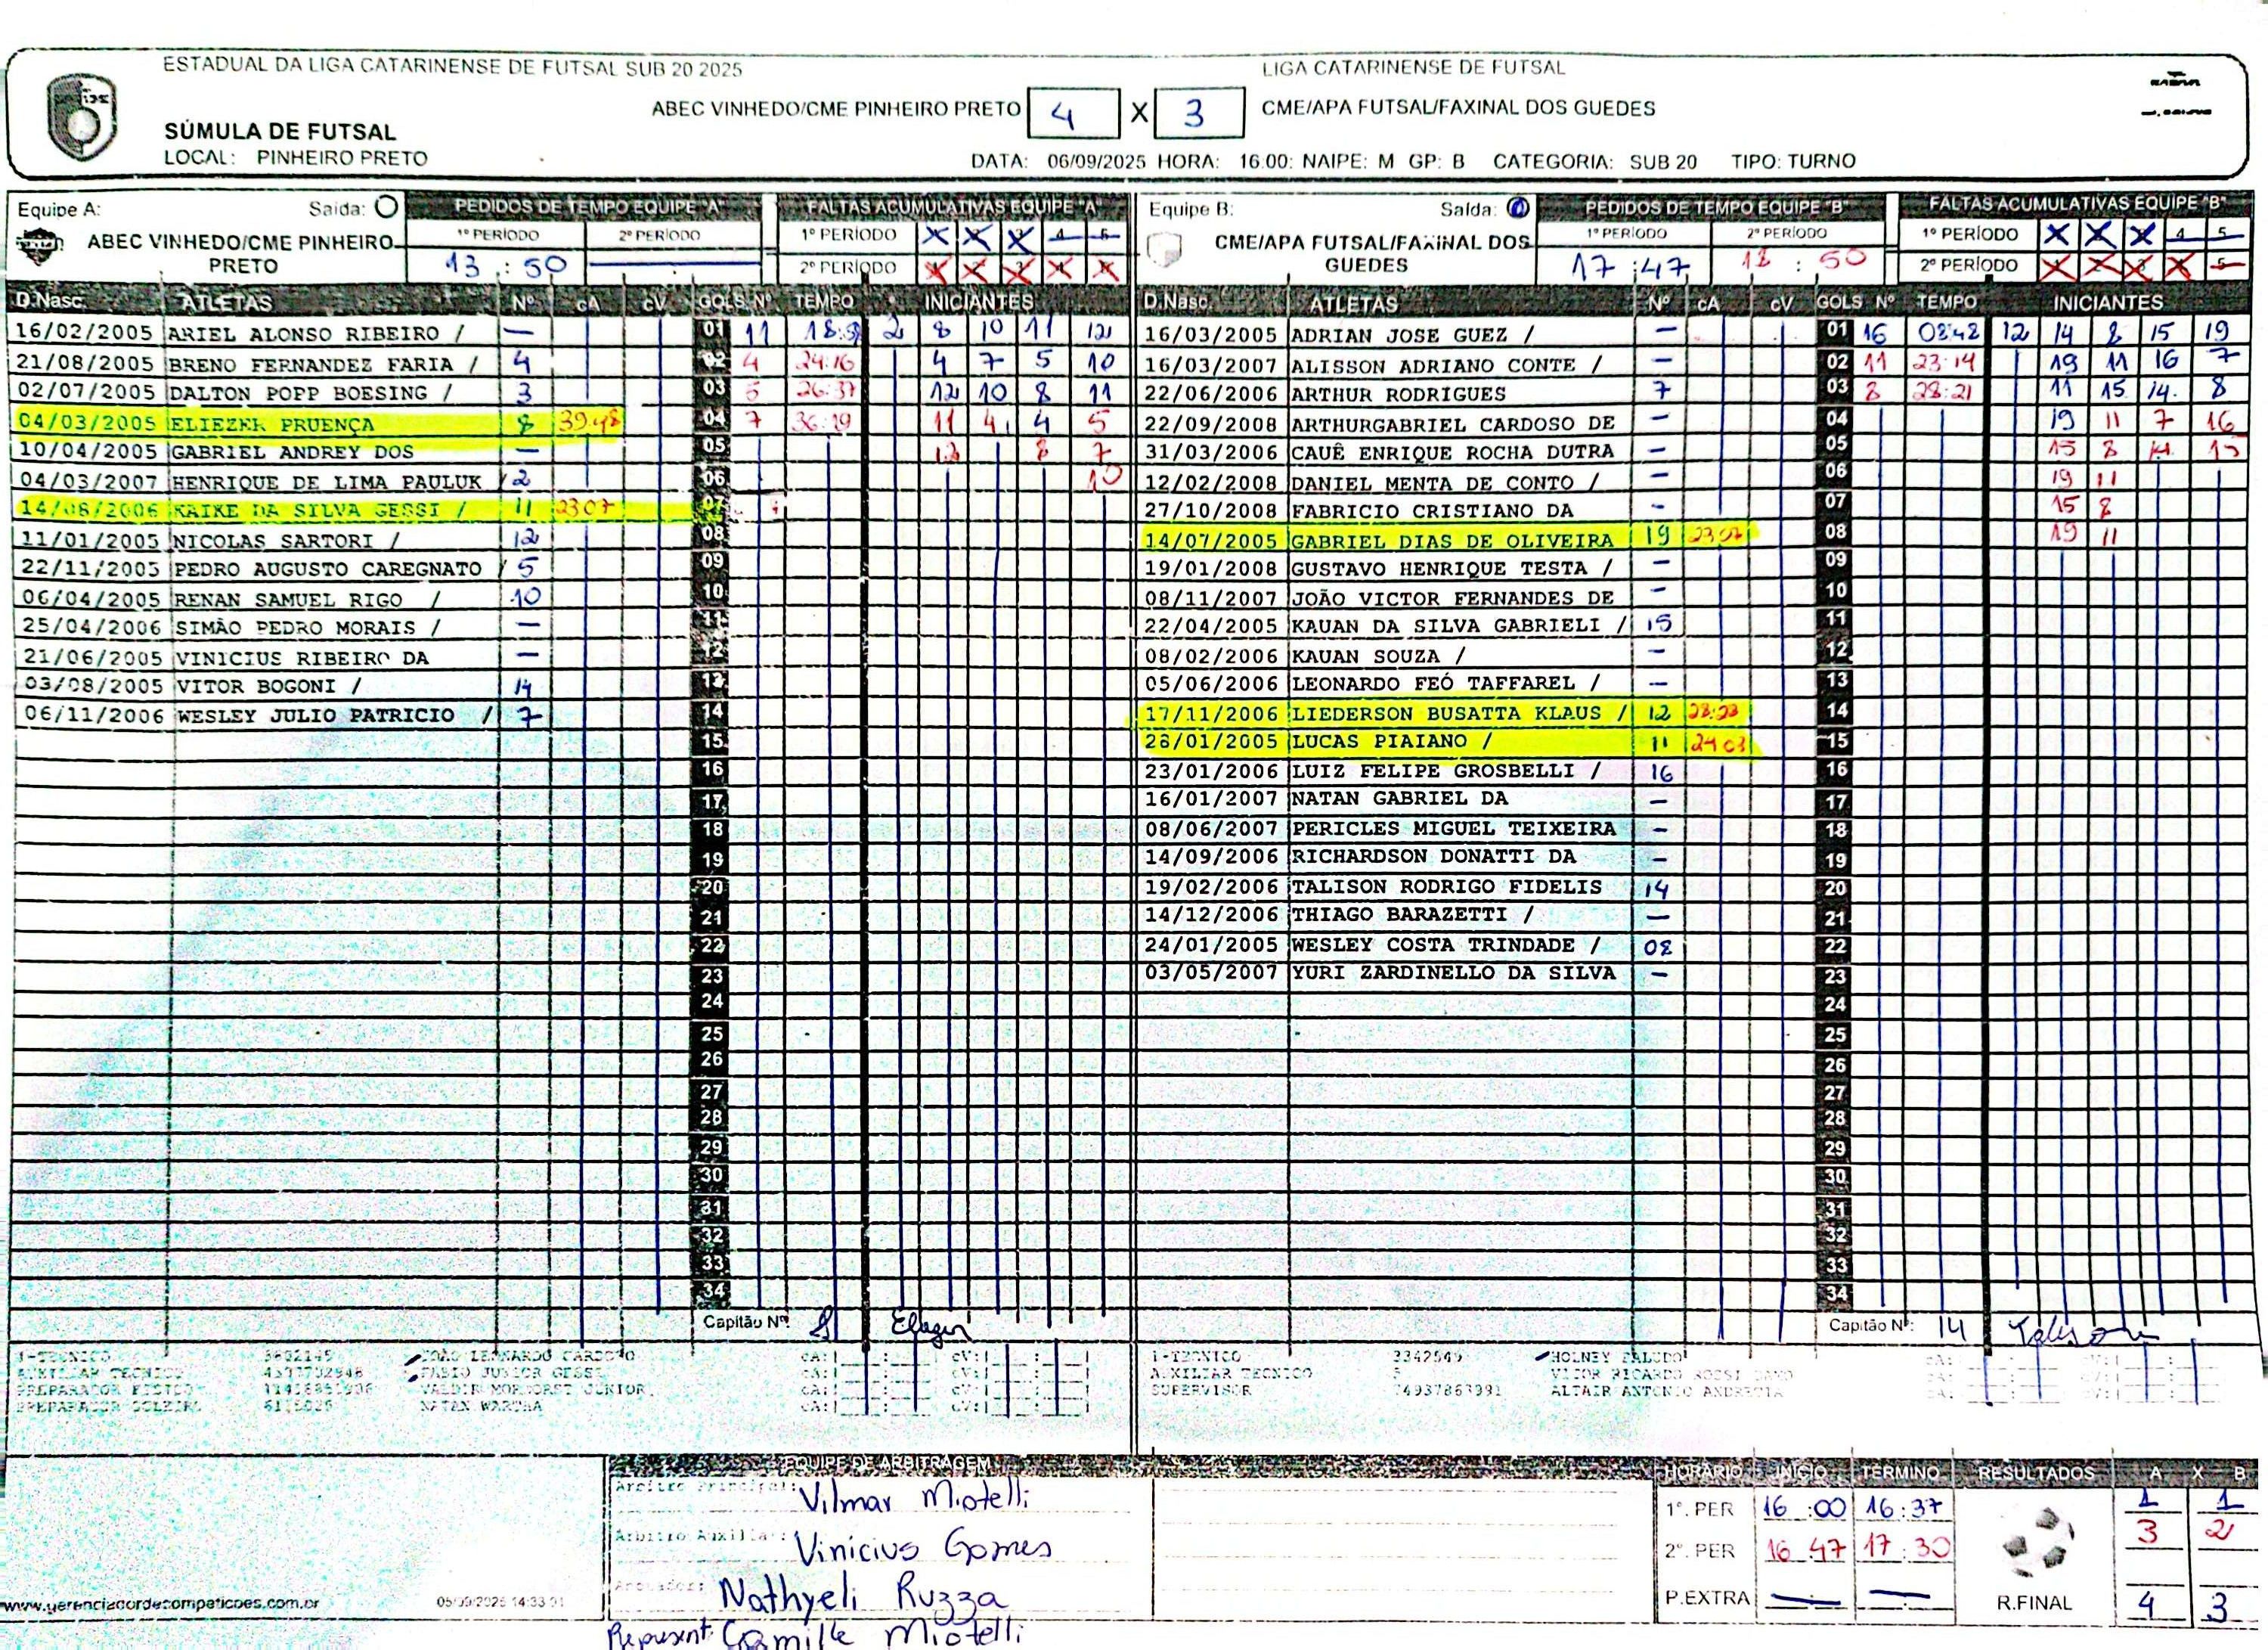 ESTADUAL DA LIGA CATARINENSE DE FUTSAL SUB 20 2025 LIGA CATARINENSE DE FUTSAL
ABEC VINHEDO/CME PINHEIRO PRETO 4 X 3 CME/APA FUTSAL/FAXINAL DOS GUEDES
SÚMULA DE FUTSAL
LOCAL: PINHEIRO PRETO DATA: 06/09/2025 HORA: 16:00: NAIPE: M GP: B CATEGORIA: SUB 20 TIPO: TURNO
Equipe A: Saída:
ABEC VINHEDO/CME PINHEIRO PRETO
PEDIDOS DE TEMPO EQUIPE "A"
1º PERÍODO 2º PERÍODO
13:50
FALTAS ACUMULATIVAS EQUIPE "A"
1º PERÍODO X X X 4 5
2º PERÍODO X X X X X
D.Nasc. ATLETAS Nº cA cV GOLS Nº TEMPO INICIANTES
16/02/2005 ARIEL ALONSO RIBEIRO / — 01 11 2 8 10 11 12
21/08/2005 BRENO FERNANDEZ FARIA / 4 02 4 24:16 4 7 5 10
02/07/2005 DALTON POPP BOESING / 3 03 5 26:37 12 10 8 11
04/03/2005 ELIEZER PRUENÇA 8 39:48 04 7 36:19 11 4 4 5
10/04/2005 GABRIEL ANDREY DOS — 05 12 8 7
04/03/2007 HENRIQUE DE LIMA PAULUK / 2 06 10
14/08/2006 KAIKE DA SILVA GESSI / 11 23:07 07
11/01/2005 NICOLAS SARTORI / 12 08
22/11/2005 PEDRO AUGUSTO CAREGNATO / 5 09
06/04/2005 RENAN SAMUEL RIGO / 10 10
25/04/2006 SIMÃO PEDRO MORAIS / — 11
21/06/2005 VINICIUS RIBEIRO DA — 12
03/08/2005 VITOR BOGONI / 14 13
06/11/2006 WESLEY JULIO PATRICIO / 7 14
15
16
17
18
19
20
21
22
23
24
25
26
27
28
29
30
31
32
33
34
Capitão Nº: 8
Equipe B: Saída:
CME/APA FUTSAL/FAXINAL DOS GUEDES
PEDIDOS DE TEMPO EQUIPE "B"
1º PERÍODO 2º PERÍODO
17:47 18:50
FALTAS ACUMULATIVAS EQUIPE "B"
1º PERÍODO X X X 4 5
2º PERÍODO X X X X 5
D.Nasc. ATLETAS Nº cA cV GOLS Nº TEMPO INICIANTES
16/03/2005 ADRIAN JOSE GUEZ / — 01 16 08:48 12 14 8 15 19
16/03/2007 ALISSON ADRIANO CONTE / — 02 11 23:14 19 11 16 7
22/06/2006 ARTHUR RODRIGUES 7 03 8 28:21 11 15 14 8
22/09/2008 ARTHURGABRIEL CARDOSO DE — 04 19 11 7 16
31/03/2006 CAUÊ ENRIQUE ROCHA DUTRA — 05 15 8 14 15
12/02/2008 DANIEL MENTA DE CONTO / — 06 19 11
27/10/2008 FABRICIO CRISTIANO DA — 07 15 8
14/07/2005 GABRIEL DIAS DE OLIVEIRA 19 23:07 08 19 11
19/01/2008 GUSTAVO HENRIQUE TESTA / — 09
08/11/2007 JOÃO VICTOR FERNANDES DE — 10
22/04/2005 KAUAN DA SILVA GABRIELI / 15 11
08/02/2006 KAUAN SOUZA / — 12
05/06/2006 LEONARDO FEÓ TAFFAREL / — 13
17/11/2006 LIEDERSON BUSATTA KLAUS / 12 28:28 14
26/01/2005 LUCAS PIAIANO / 11 24:03 15
23/01/2006 LUIZ FELIPE GROSBELLI / 16 16
16/01/2007 NATAN GABRIEL DA — 17
08/06/2007 PERICLES MIGUEL TEIXEIRA — 18
14/09/2006 RICHARDSON DONATTI DA — 19
19/02/2006 TALISON RODRIGO FIDELIS 14 20
14/12/2006 THIAGO BARAZETTI / — 21
24/01/2005 WESLEY COSTA TRINDADE / 08 22
03/05/2007 YURI ZARDINELLO DA SILVA — 23
24
25
26
27
28
29
30
31
32
33
34
Capitão Nº: 14 Talison
AUXILIAR TECNICO FABIO JUNIOR GESSI cA: cV:
PREPARADOR FISICO cA: cV:
PREPARADOR GOLEIRO cA: cV:
1-TECNICO
AUXILIAR TECNICO
SUPERVISOR 74937863991 ALTAIR ANTONIO
EQUIPE DE ARBITRAGEM
Arbitro Principal: Vilmar Miotelli
Arbitro Auxiliar: Vinicius Gomes
Anotador: Nathyeli Ruzza
Represent: Camille Miotelli
HORÁRIO INÍCIO TÉRMINO RESULTADOS A X B
1º. PER 16:00 16:37 1 1
2º. PER 16:47 17:30 3 2
P.EXTRA — — R.FINAL 4 3
www.gerenciadordecompeticoes.com.br 05/09/2025